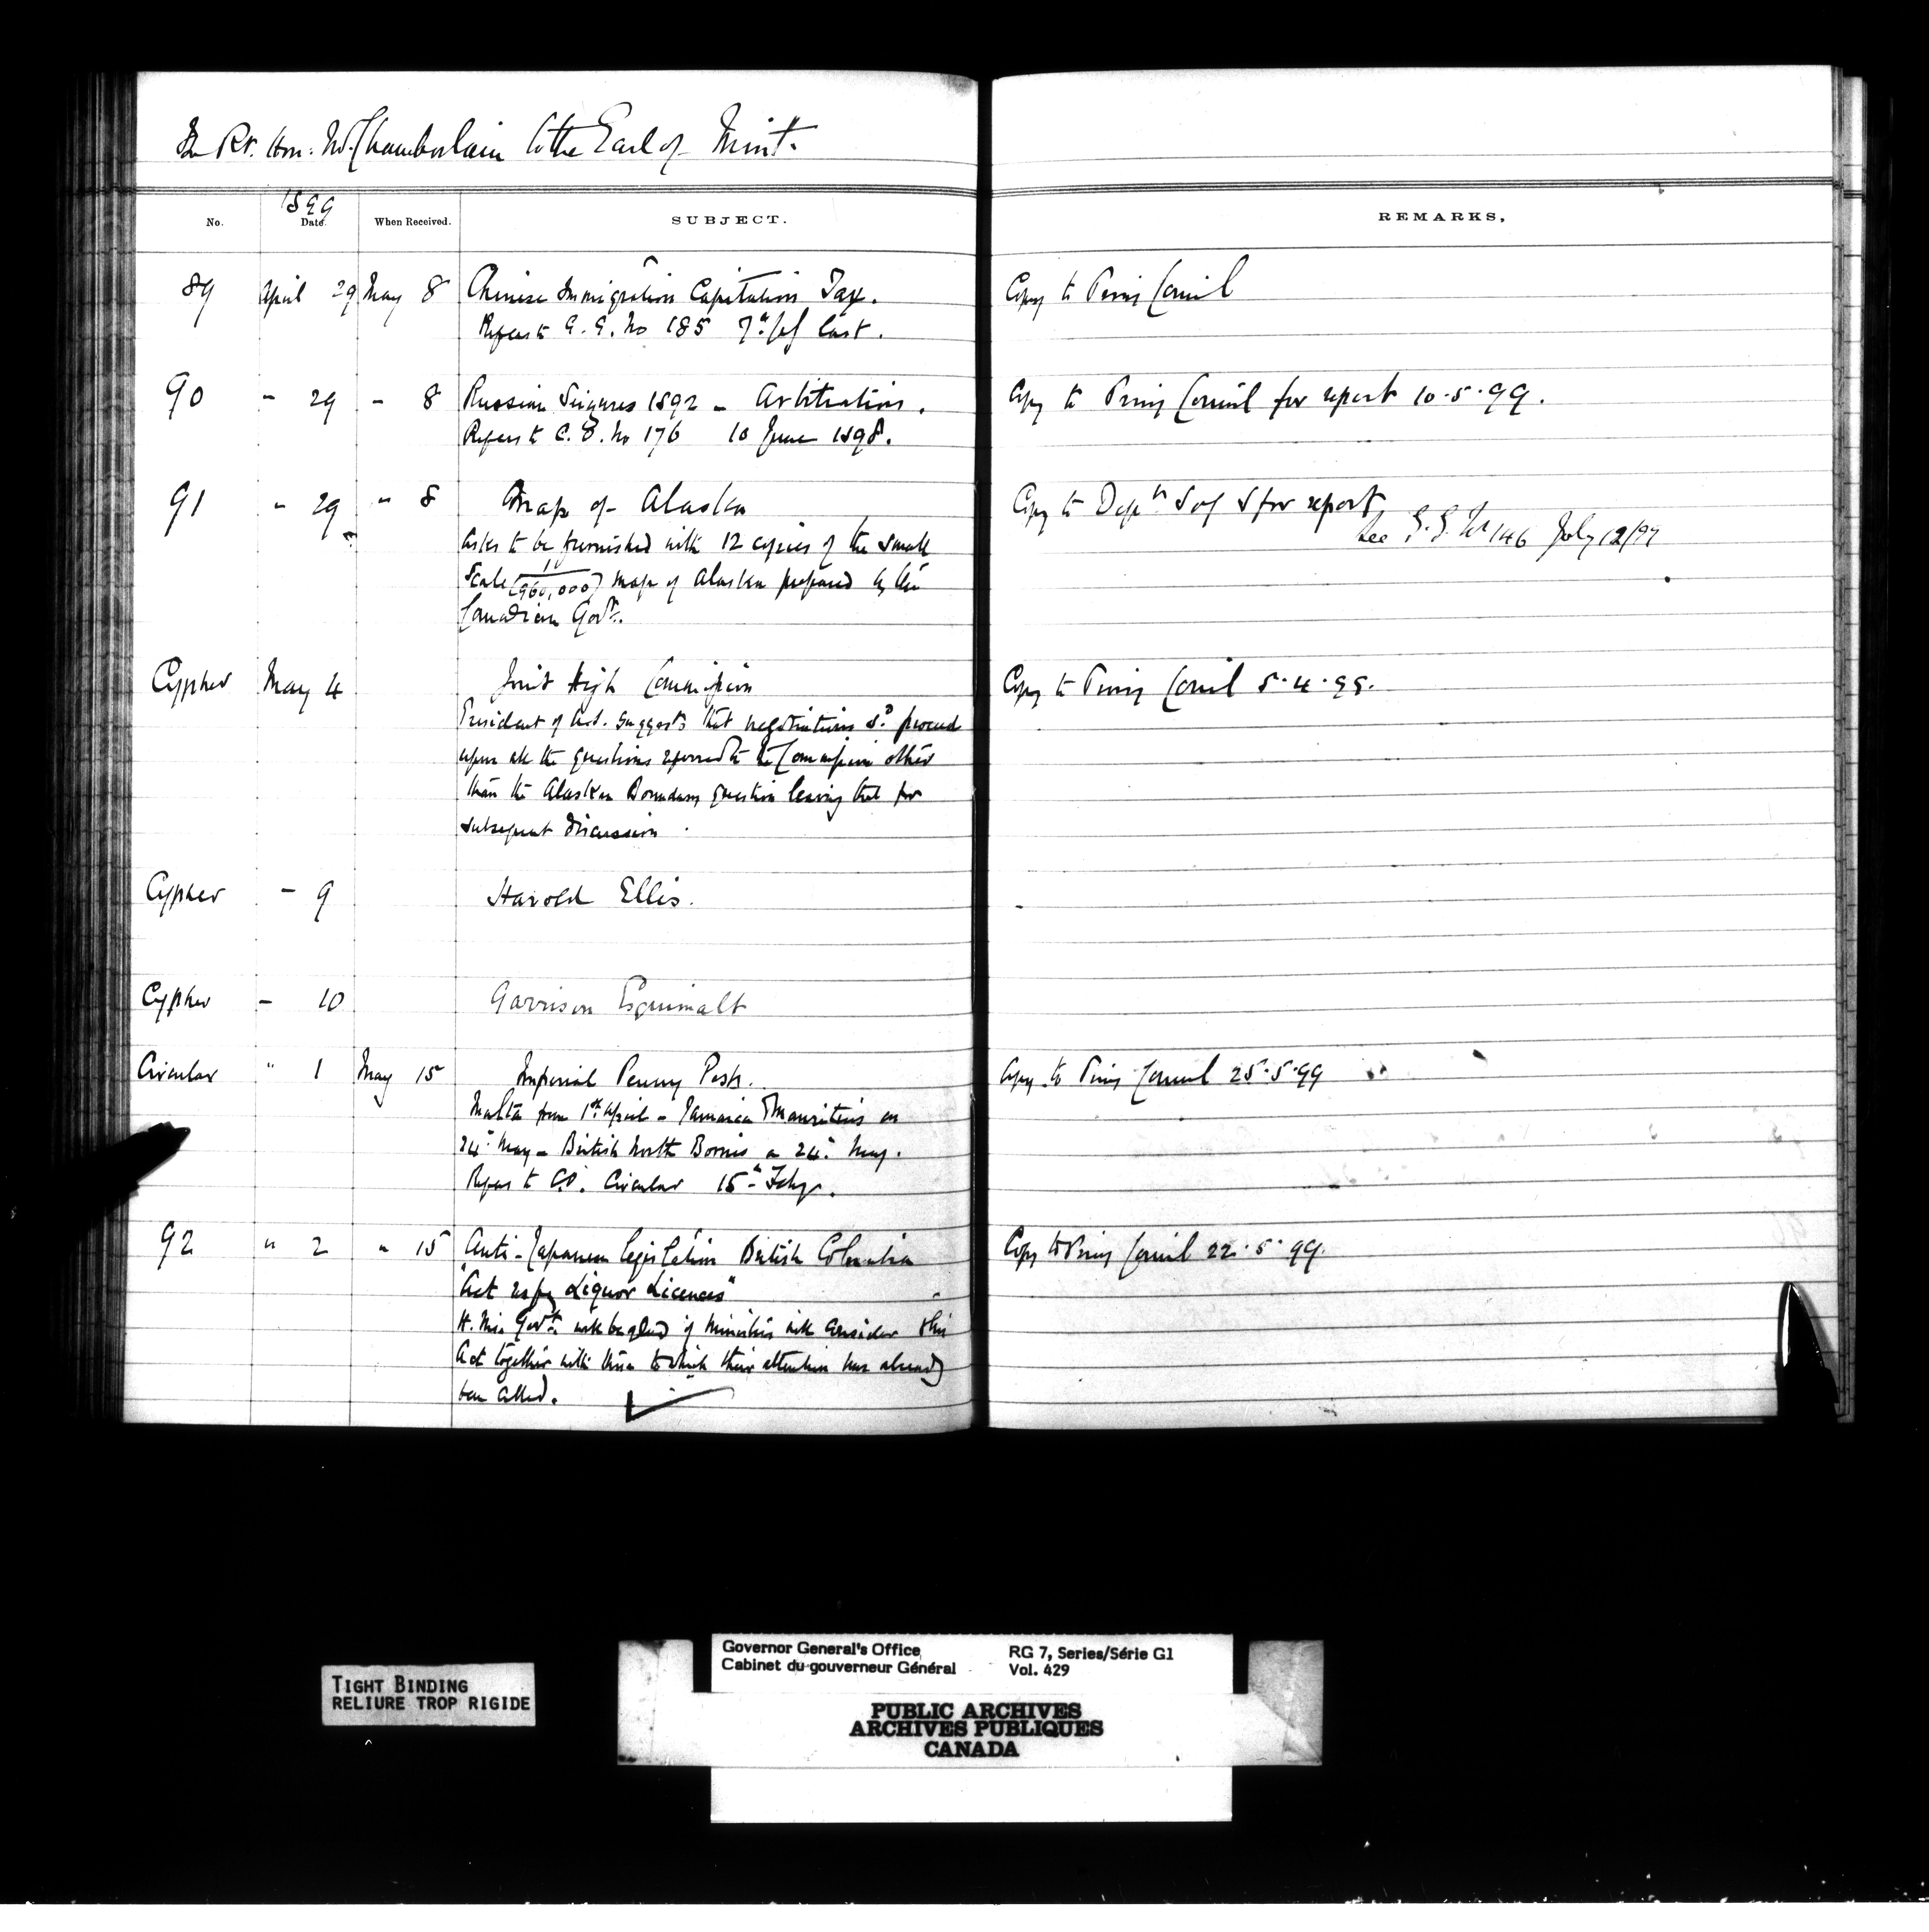 The Rt. Hon. Mr. Chamberlain to the Earl of Minto.
1899
No. Date. When Received. SUBJECT. REMARKS.
89 April 29 May 8 Chinese Immigration Capitation Tax. Copy to Privy Council
Refers to G. G. No 185 7th last.
90 - 29 - 8 Russian Seizures 1892 - Arbitration. Copy to Privy Council for report 10.5.99.
Refers to C.O. No 176 10 June 1898.
91 " 29 " 8 Map of Alaska Copy to Dep. S of S for report
See G.G. No 146 July 12/99
Asks to be furnished with 12 copies of the small
Scale (1/960,000) map of Alaska prepared by the
Canadian Govt.
Cypher May 4 Joint High Commission Copy to Privy Council 5.4.99.
President of suggests that negotiations sd. proceed
upon all the questions referred to the Commission other
than the Alaskan Boundary question leaving that for
subsequent discussion.
Cypher - 9 Harold Ellis.
Cypher - 10 Garrison Esquimalt
Circular " 1 May 15 Imperial Penny Post. Copy to Privy Council 25.5.99
Malta from 1st April - Jamaica & Mauritius on
24th May - British North Borneo on 24th May.
Refers to C.O. Circular 15th Feby.
92 " 2 " 15 Anti-Japanese legislation British Columbia Copy to Privy Council 22.5.99.
"Act respg Liquor Licences"
H. M's Govt. will be glad if ministers will consider this
Act together with those to which their attention has already
been called.
TIGHT BINDING
RELIURE TROP RIGIDE
Governor General's Office
Cabinet du gouverneur Général
RG 7, Series/Série G1
Vol. 429
PUBLIC ARCHIVES
ARCHIVES PUBLIQUES
CANADA